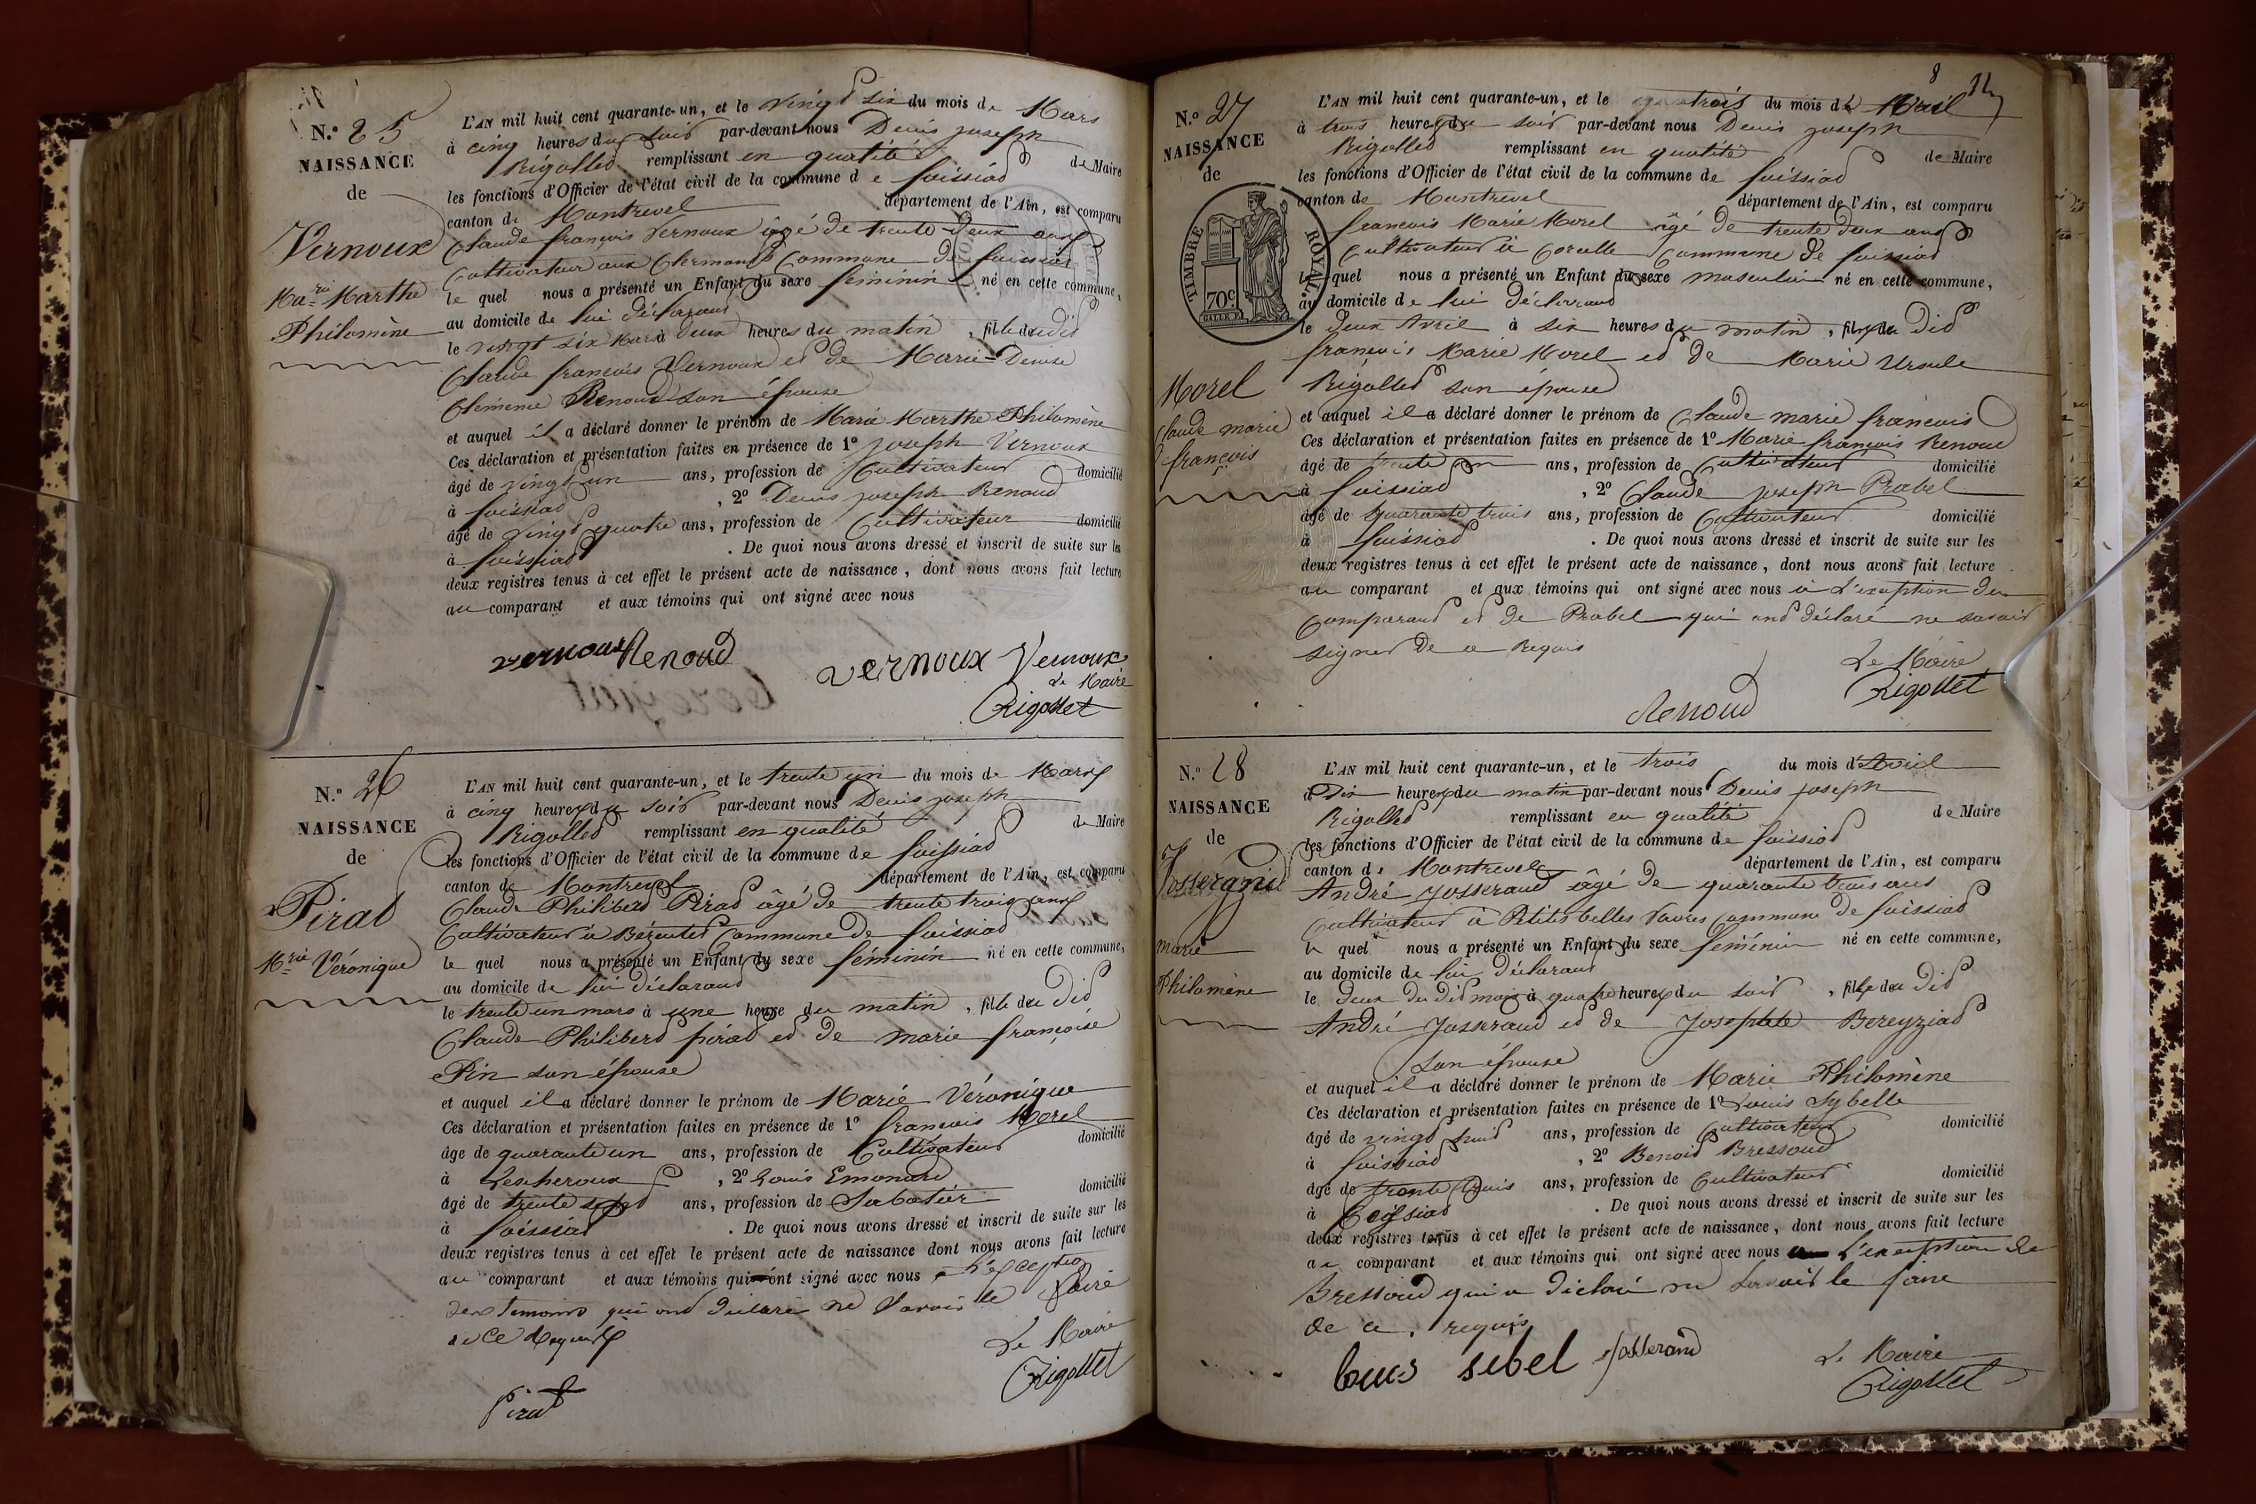 N.º 25
NAISSANCE
de
Vernoux
Ma.rie Marthe
Philomène
L'AN mil huit cent quarante-un, et le vingt six du mois de Mars
à cinq heures du soir par-devant nous Denis joseph
Rigollet remplissant en qualité de Maire
les fonctions d'Officier de l'état civil de la commune de foissiat
canton de Montrevel département de l'Ain, est comparu
Claude françois Vernoux âgé de trente deux ans
Cultivateur aux Clermonts Commune de foissiat
le quel nous a présenté un Enfant du sexe féminin né en cette commune,
au domicile de lui déclarant
le vingt six Mars à deux heures du matin, fille du dit
Claude françois Vernoux et de Marie-Denise
Clémence Renoud son épouse
et auquel il a déclaré donner le prénom de Marie Marthe Philomène
Ces déclaration et présentation faites en présence de 1º joseph Vernoux
âgé de vingt un ans, profession de Cultivateur domicilié
à foissiat, 2º Denis joseph Renoud
âgé de vingt quatre ans, profession de Cultivateur domicilié
à foissiat. De quoi nous avons dressé et inscrit de suite sur les
deux registres tenus à cet effet le présent acte de naissance, dont nous avons fait lecture
au comparant et aux témoins qui ont signé avec nous
vernoux Renoud vernoux Vernoux
Le Maire
Rigollet
N.º 26
NAISSANCE
de
Pirat
M.rie Véronique
L'AN mil huit cent quarante-un, et le trente un du mois de Mars
à cinq heures du soir par-devant nous Denis joseph
Rigollet remplissant en qualité de Maire
les fonctions d'Officier de l'état civil de la commune de foissiat
canton de Montrevel département de l'Ain, est comparu
Claude Philibert Pirat âgé de trente trois ans
Cultivateur à Bézentet Commune de foissiat
le quel nous a présenté un Enfant du sexe féminin né en cette commune,
au domicile de lui déclarant
le trente un mars à une heure du matin, fille du dit
Claude Philibert pirat et de marie françoise
Pin son épouse
et auquel il a déclaré donner le prénom de Marie Véronique
Ces déclaration et présentation faites en présence de 1º françois Morel
âgé de quarante un ans, profession de Cultivateur domicilié
à Lescheroux, 2º Louis Emonard
âgé de trente sept ans, profession de Sabotier domicilié
à foissiat. De quoi nous avons dressé et inscrit de suite sur les
deux registres tenus à cet effet le présent acte de naissance dont nous avons fait lecture
au comparant et aux témoins qui ont signé avec nous à l'exception
des temoins qui ont déclaré ne savoir le faire
de ce Requis
Le Maire
Pirat Rigollet
8
N.º 27
NAISSANCE
de
TIMBRE ROYAL
70c
Morel
Claude marie
françois
L'AN mil huit cent quarante-un, et le trois du mois d'Avril
à trois heures du soir par-devant nous Denis joseph
Rigollet remplissant en qualité de Maire
les fonctions d'Officier de l'état civil de la commune de foissiat
canton de Montrevel département de l'Ain, est comparu
françois Marie Morel âgé de trente deux ans
Cultivateur à Corcelle Commune de foissiat
le quel nous a présenté un Enfant du sexe masculin né en cette commune,
au domicile de lui déclarant
le deux Avril à six heures du matin, fils du dit
françois Marie Morel et de Marie Ursule
Rigollet son épouse
et auquel il a déclaré donner le prénom de Claude marie françois
Ces déclaration et présentation faites en présence de 1º Marie françois Renoud
âgé de trente ans, profession de Cultivateur domicilié
à foissiat, 2º Claude joseph Prabel
âgé de quarante trois ans, profession de Cultivateur domicilié
à foissiat. De quoi nous avons dressé et inscrit de suite sur les
deux registres tenus à cet effet le présent acte de naissance, dont nous avons fait lecture
au comparant et aux témoins qui ont signé avec nous à l'exception du
Comparant et de Prabel qui ont déclaré ne savoir
signer de ce Requis
Le Maire
Renoud Rigollet
N.º 28
NAISSANCE
de
Josserand
marie
Philomène
L'AN mil huit cent quarante-un, et le trois du mois d'Avril
à Dix heures du matin par-devant nous Denis joseph
Rigollet remplissant en qualité de Maire
les fonctions d'Officier de l'état civil de la commune de foissiat
canton de Montrevel département de l'Ain, est comparu
André Josserand âgé de quarante trois ans
Cultivateur à Petites belles Vavres Commune de foissiat
le quel nous a présenté un Enfant du sexe féminin né en cette commune,
au domicile de lui déclarant
le deux du dit mois à quatre heures du soir, fille du dit
André Josserand et de Josephte Bereyziat
son épouse
et auquel il a déclaré donner le prénom de Marie Philomène
Ces déclaration et présentation faites en présence de 1º Louis Sybelle
âgé de vingt huit ans, profession de Cultivateur domicilié
à foissiat, 2º Benoit Bressoud
âgé de trente trois ans, profession de Cultivateur domicilié
à foissiat. De quoi nous avons dressé et inscrit de suite sur les
deux registres tenus à cet effet le présent acte de naissance, dont nous avons fait lecture
au comparant et aux témoins qui ont signé avec nous à L'exception de
Bressoud qui a déclaré ne savoir le faire
de ce requis
Louis sibel Josserand Le Maire
Rigollet